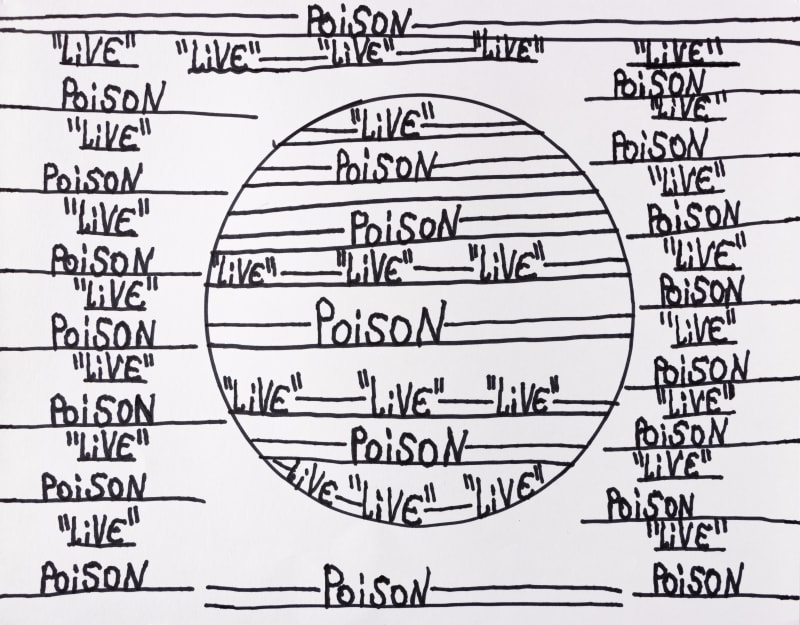 POiSON
"LiVE" "LiVE" "LiVE" "LiVE" "LiVE"
POiSON
"LiVE"
POiSON
"LiVE"
POiSON
"LiVE"
POiSON
"LiVE"
POiSON
"LiVE"
POiSON
"LiVE"
POiSON
"LiVE"
POiSON
POiSON
"LiVE" "LiVE" "LiVE"
POiSON
"LiVE" "LiVE" "LiVE"
POiSON
"LiVE "LiVE" "LiVE"
POiSON
POiSON
"LiVE"
POiSON
"LiVE"
POiSON
"LiVE"
POiSON
"LiVE"
POiSON
"LiVE"
POiSON
"LiVE"
POiSON
"LiVE"
POiSON